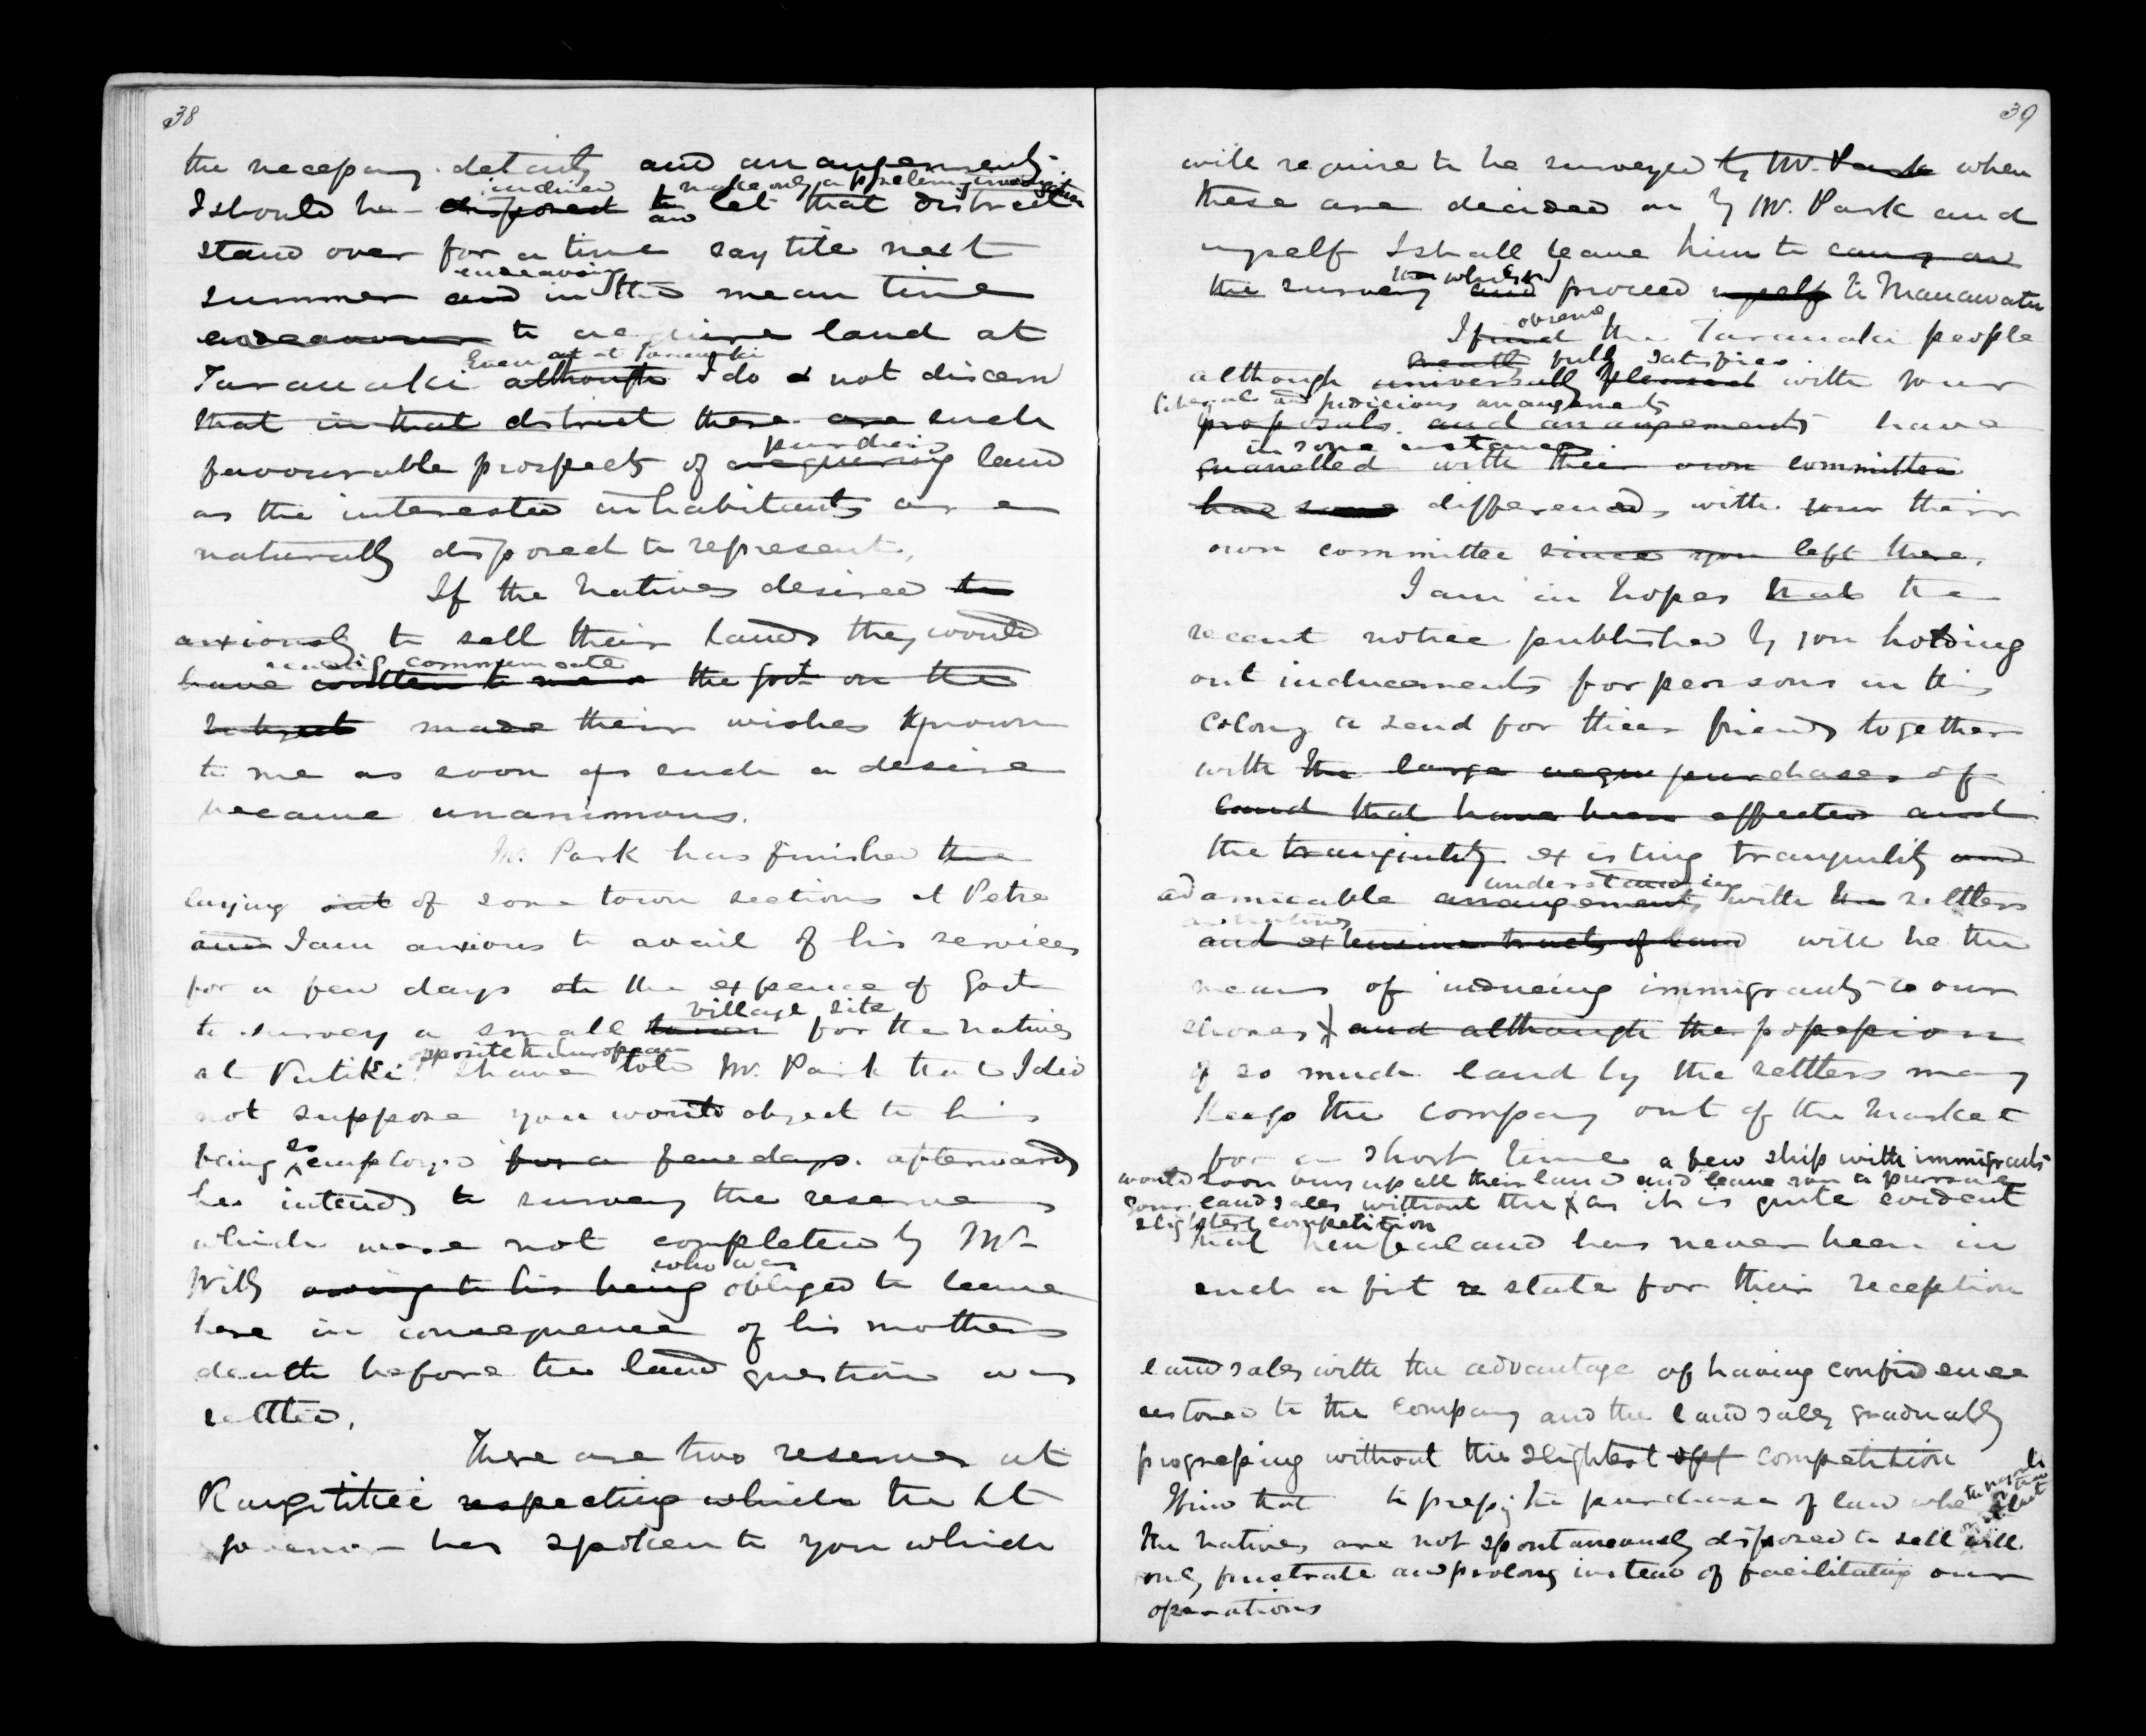 38
the necessary details and arrangements.
inclined make only a prelimy investigation
I should be disposed to let that district
and
stand over for a time say till next
endeavouring
summer and in the mean time
endeavour to acquire land at
Even at Taranaki
Taranaki although I do not discern
that in that district there are such
purchasing
favourable prospects of acquiring land
as the interested inhabitants are
naturally disposed to represent.
If the Natives desired to
anxiously to sell their lands they would
readily communicate
have written to me or the govt on the
subject made their wishes known
to me as soon as such a desire
became unanimous.
Mr Park has finished the
laying out of some town sections at Petre
and I am anxious to avail of his services
for a few days at the expence of Govt
village site
to survey a small town for the natives
opposite the European
at Putiki. I have told Mr. Park that I did
not suppose you would object to his
so
being employed for a few days. afterwards
he intends to survey the reserves
which were not completed by Mr
who was
Wills owing to his being obliged to leave
here in consequence of his mothers
death before the land question was
settled.
There are two reserves at
Rangitikei respecting which the Lt
Governor has spoken to you which
39
will require to be surveyed by Mr. Park when
these are decided on by Mr. Park and
myself I shall leave him to carry on
the survey and proceed myself to Manawatu
observe
I find the Taranaki people
fully satisfied
although universally pleased with your
liberal and judicious arrangements
proposals. and arrangements have
in some instances
quarrelled with their own committee
had some differences with your their
own committee since you left there.
I am in hopes that the
recent notice published by you holding
out inducements for persons in this
Colony to send for their friends together
with the large purchases of
land that have been effected and
the tranquility existing tranquility and
understanding
and amicable arrangements with the settlers
and natives
and extensive tracts of land will be the
means of inducing immigrants to our
shores X and although the possession
of so much land by the settlers may
keep the Company out of the Market
for a short time a few ship with immigrants
would soon buy up all their land and leave you to pursue
your land sales without the X as it is quite evident
slightest competition
that New Zealand has never been in
such a fit state for their reception
land sales with the advantage of having confidence
restored to the Company and the land sales gradually
progressing without the slightest opp competition
that to press the purchase of land
the natives are not spontaneously disposed to sell will
only frustrate and prolong instead of facilitating our
operations